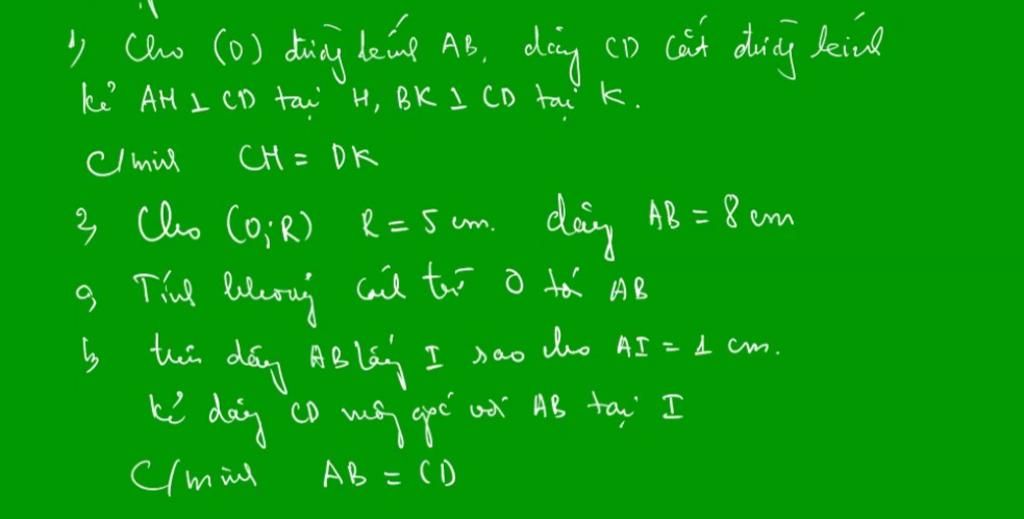 1) Cho (O) đường kính AB, dây CD cắt đường kính
kẻ AH ⊥ CD tại H, BK ⊥ CD tại K.
C/minh CH = DK
2) Cho (O;R) R = 5 cm. dây AB = 8 cm
a) Tính khoảng cách từ O tới AB
b) trên dây AB lấy I sao cho AI = 1 cm.
kẻ dây CD vuông góc với AB tại I
C/minh AB = CD